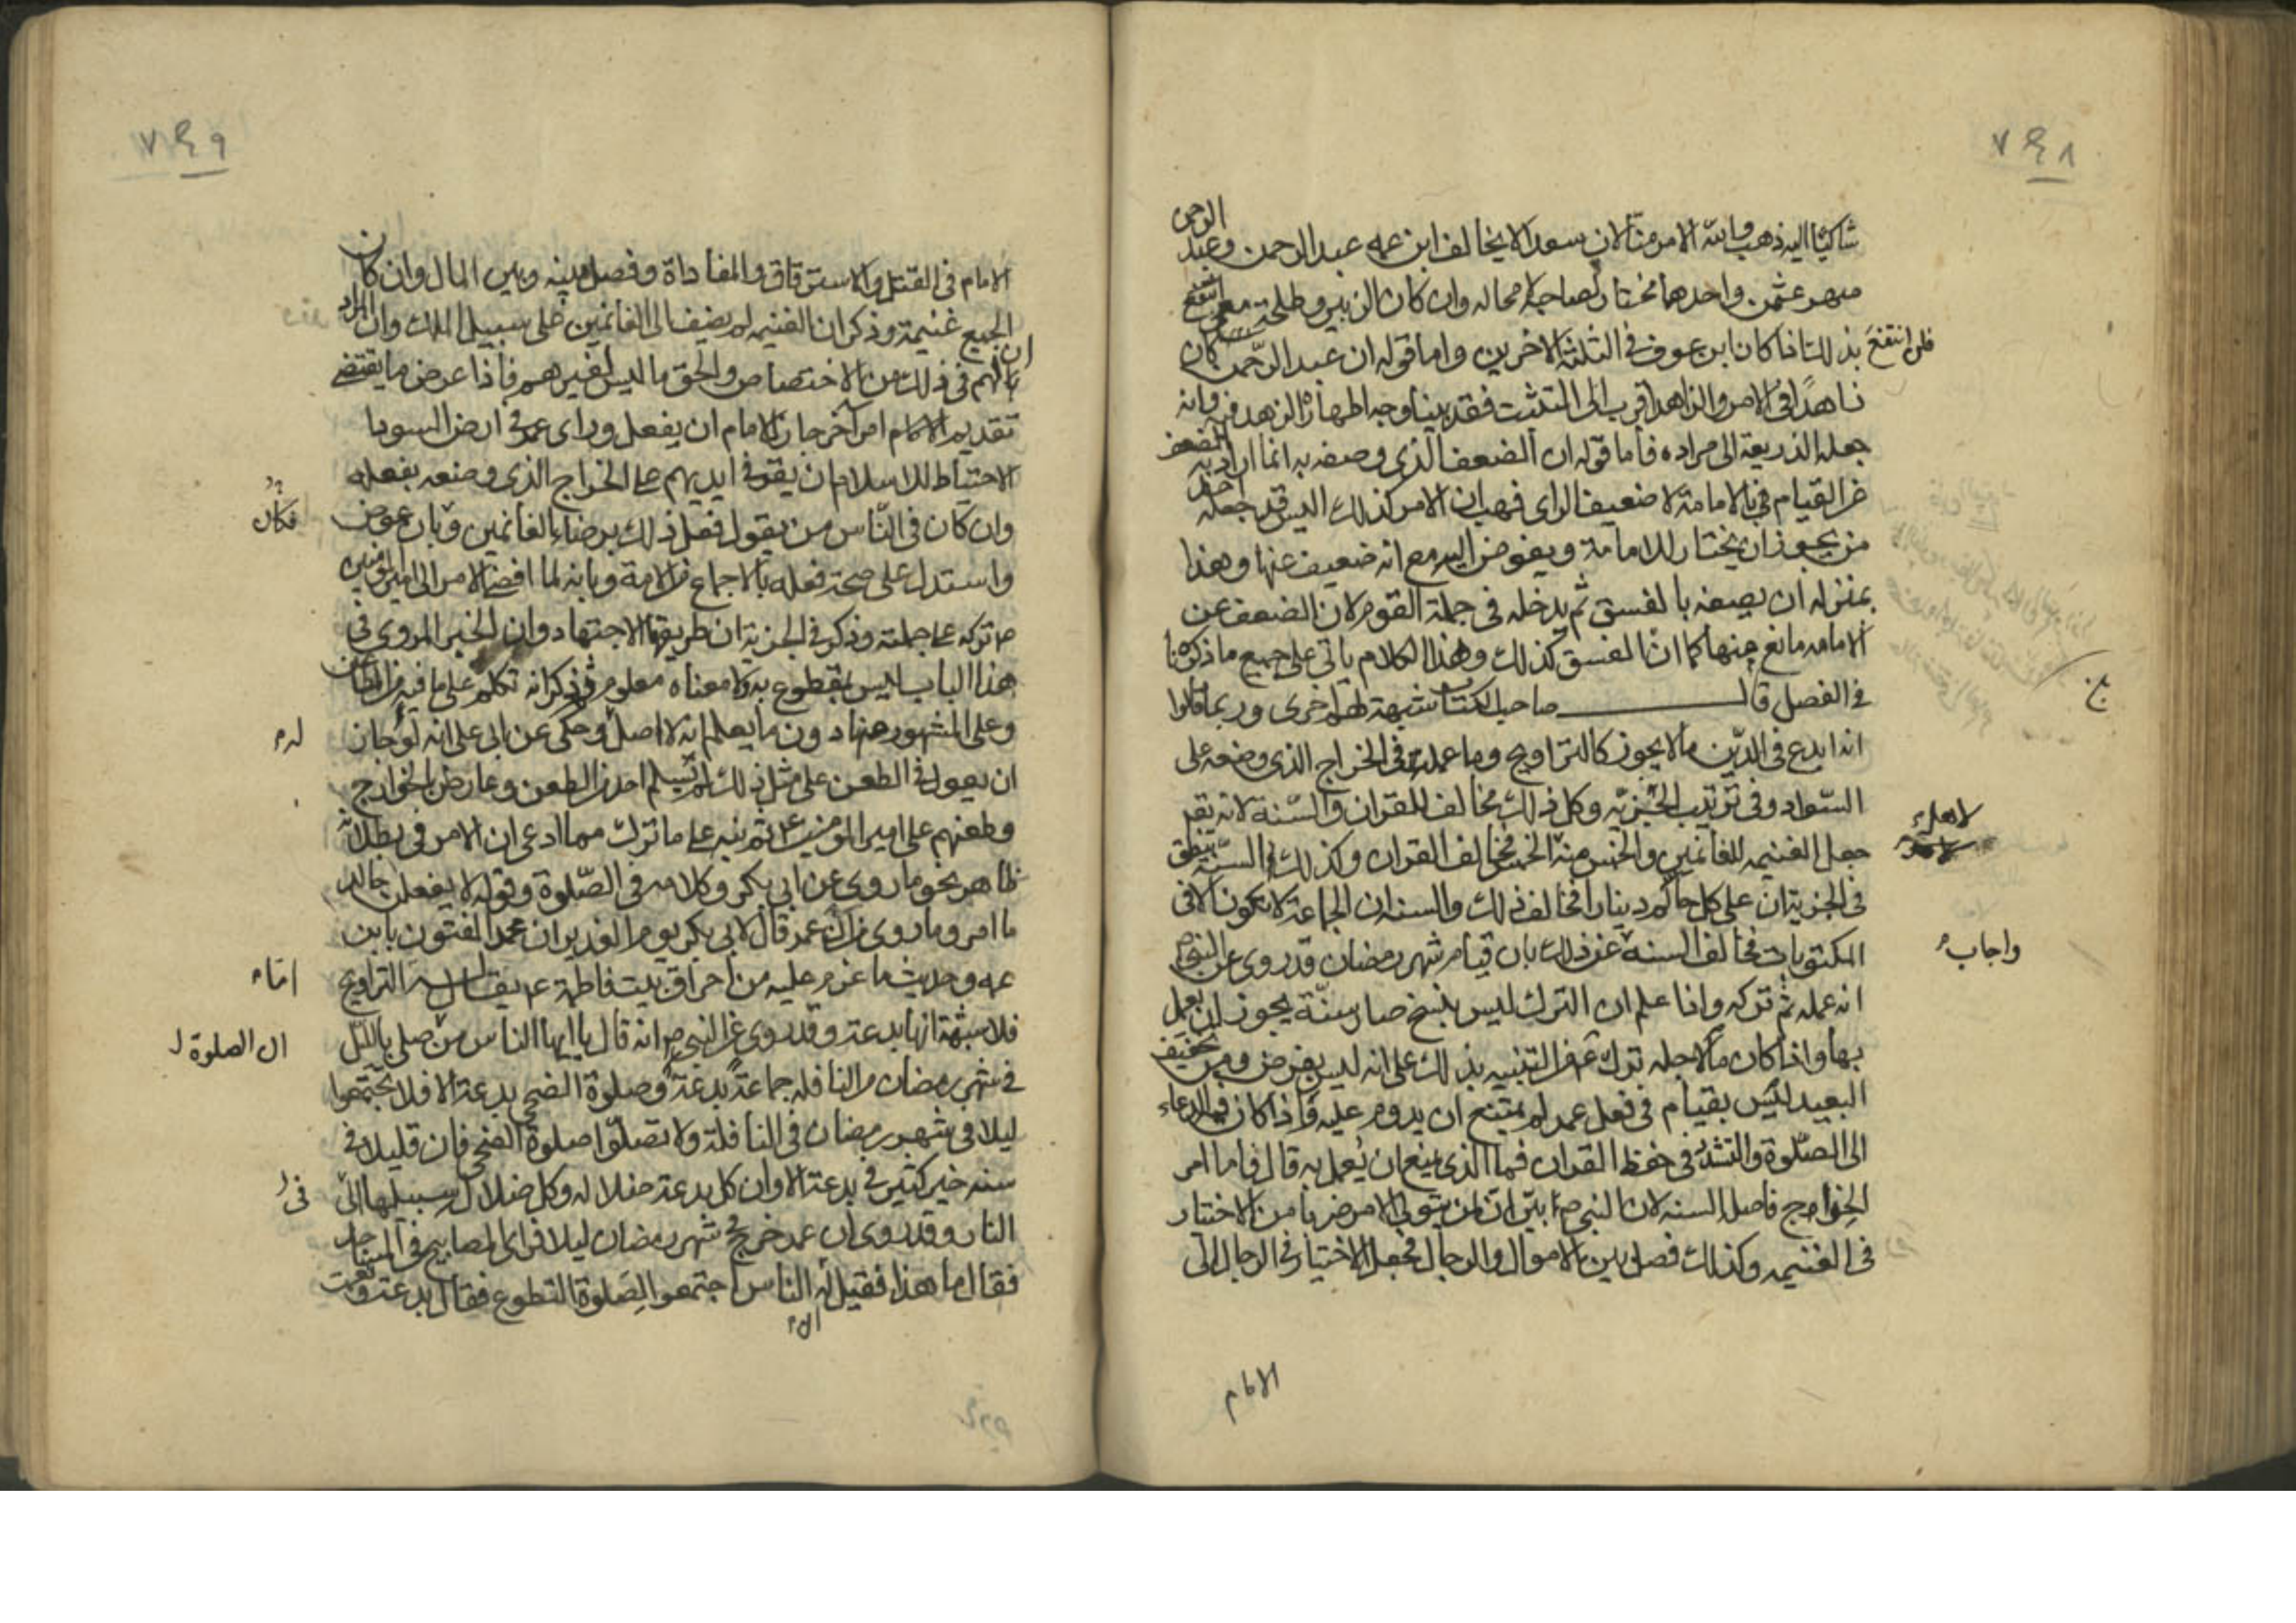 ٧٤٨
شاكيًا اليه ذهب والله الامر منّا لان سعدا لا يخالف ابن عمه عبد الرحمن وعبد الرحمن
صهر عثمن واحدهما مختار لصاحبه لا محاله وان كان الزبير وطلحة معى
فلن انتفع بذلك اذا كان ابن عوف فى الثلثة الاخرين واما قوله ان عبد الرحمن كان
زاهدًا فى الامر والزاهد اقرب الى التثبت فقد بينا وجه اظهاره الزهد فيه وانه
جعله الذريعة الى مراده فاما قوله ان الضعف الذى وصفه به انما اراد به الضعف
عن القيام بالامامة لا ضعيف الراى فهب ان الامر كذلك اليس قد جعله احد
من يجوز ان يختار للامامة ويفوض اليه مع انه ضعيف عنها وهذا
بمنزله ان يصفه بالفسق ثم يدخله فى جملة القوم لان الضعف عن
الامامه مانع منها كما ان الفسق كذلك وهذا الكلام ياتى على جميع ما ذكرناه
فى الفصل قال صاحب الكتاب شبهة لهم اخرى وربما قالوا
انه ابدع فى الدّين ما لا يجوز كالتراويح وما عمله فى الخراج الذى وضعه على
السّواد وفى ترتيب الجزيه وكل ذلك مخالف للقران والسّنة لانه تعر
جعل الغنيمه للغانمين والخمس منه لاهل الخمس فخالف القران وكذلك السنّه ينطق
فى الجزية ان على كل حالم دينارا فخالف ذلك والسنه ان الجماعة لا يكون الا فى
المكتوبات فخالف السنه واجاب عن ذلك بان قيام شهر رمضان قد روى عن النبى ص
انه عمله ثم تركه واذا علم ان الترك ليس بنسخ صار سنّة يجوز ان يعمل
بها واذا كان ما لاجله ترك من التنبيه بذلك على انه ليس بفرض ومن تخفيف
التعبد ليس بقيام فى فعل عمر لم يمتنع ان يدوم عليه فاذا كان فيه الدعاء
الى الصّلوة والتشدّد فى حفظ القران فما الذى يمنع ان يُعمل به قال فاما امر
الخراج فاصل السنه لان النبى ص بيّن ان لمن يتولى الامر ضربا من الاختيار
فى الغنيمه وكذلك فصل بين الاموال والرجال فجعل الاختيار فى الرجال الى
الامام
٧٤٩
الامام فى القتل والاسترقاق والمفاداة وفصل بينه وبين المال وان كان
الجميع غنيمة وذكر ان الغنيمه لم يضف الى الغانمين على سبيل الملك وان المراد
ان لهم فى ذلك من الاختصاص والحق ما ليس لغيرهم فاذا عرض ما يقتضى
تقديم الامام امر آخر جاز للامام ان يفعل وراى عمر فى ارض السواد
الاحتياط للاسلام ان يقر فى ايديهم على الخراج الذى وضعه بفعله
وان كان فى النّاس من يقول فعل ذلك برضاء الغانمين وبان عوض فكان
واستدل على صحة فعله بالاجماع من الامة وبانه لما افضى الامر الى امير المؤمنين
ص تركه على جملته وذكر فى الجزية ان طريقها الاجتهاد وان الخبر المروى فى
هذا الباب ليس بمقطوع به ولا معناه معلوم وذكر انه تكلم على ما فيه من المطاعن
وعلى المشهور منها دون ما يعلم انه لا اصل له وحكى عن ابى على انه لو جاز
ان يعول فى الطعن على مثل ذلك لم يسلم احد من الطعن وعارض بالخوارج
وطعنهم على امير المؤمنين ع ثم نبه على ما ترك مما ادعى ان الامر فى بطلانه
ظاهر نحو ما روى عن ابى بكر وكلامه فى الصّلوة وقوله لا يفعلن خالد
ما امر وما روى من ان عمر قال لابى بكر يوم الغدير ان محمدا لمفتون بابن
عمه وحديث ما عزم عليه من احراق بيت فاطمة ع يقال له اما التراويح
فلا شبهة انها بدعة وقد روى عن النبى ص انه قال يا ايها الناس ان الصلوة بالليل
فى شهر رمضان من النافله جماعة بدعة وصلوة الضحى بدعة الا فلا يجتمعوا
ليلا فى شهر رمضان فى النافلة ولا تصلّوا صلوة الضحى فان قليلا فى
سنه خير من كثير فى بدعة الا وان كل بدعة ضلاله وكل ضلال سبيلها الى
النار وقد روى ان عمر خرج فى شهر رمضان ليلا فراى المصابيح فى المساجد
فقال ما هذا فقيل له ان الناس اجتمعوا لصلوة التطوع فقال بدعة ونعمت